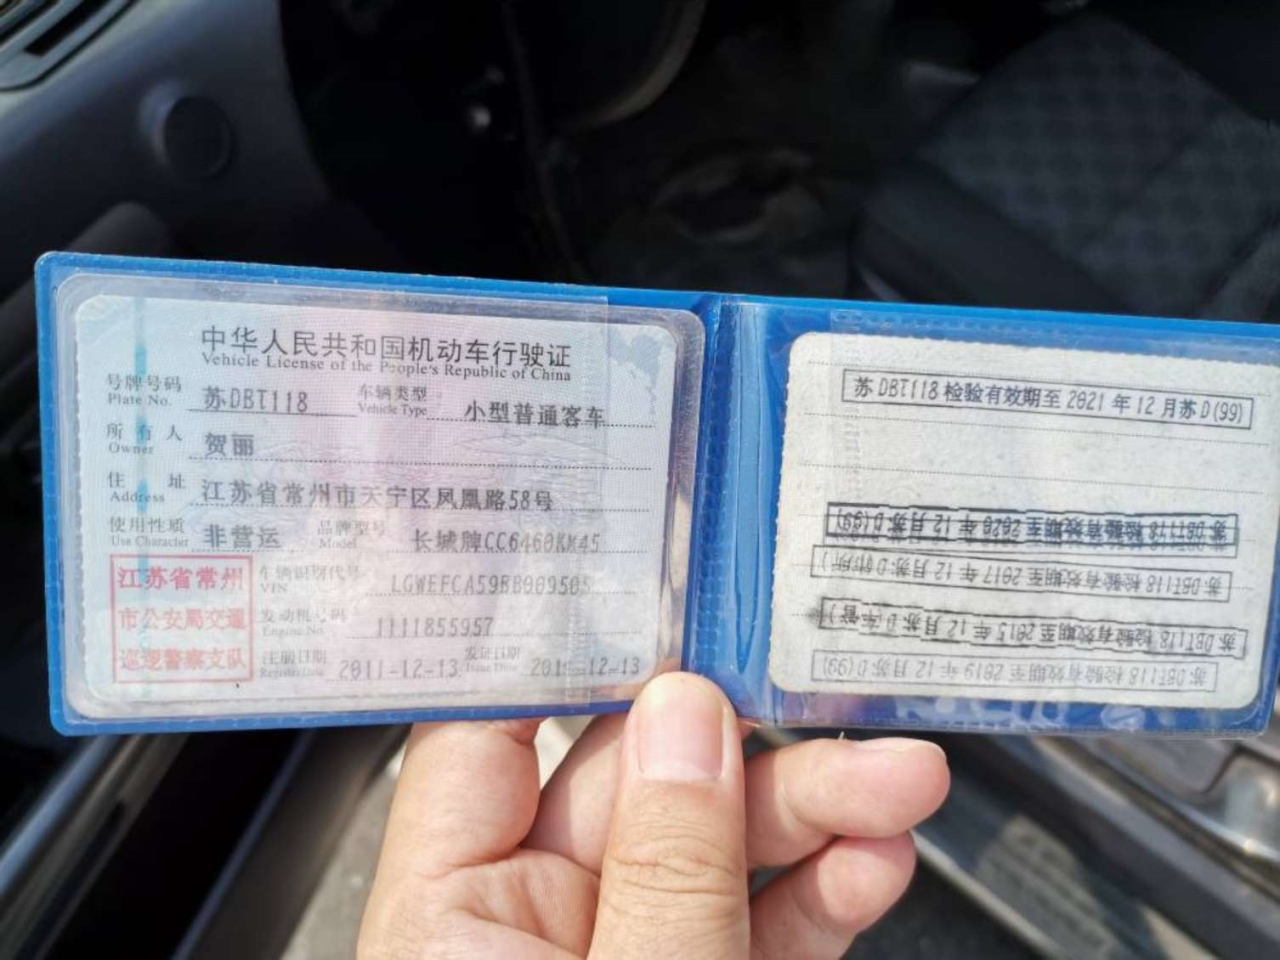 中华人民共和国机动车行驶证
Vehicle License of the People's Republic of China
号牌号码 苏DBT118 车辆类型 小型普通客车
Plate No. Vehicle Type
所有人 贺丽
Owner
住址 江苏省常州市天宁区凤凰路58号
Address
使用性质 非营运 品牌型号 长城牌CC6460KM45
Use Character Model
江苏省常州
市公安局交通
巡逻警察支队
车辆识别代号 LGWEFCA59BB009505
VIN
发动机号码 1111855957
Engine No.
注册日期 2011-12-13 发证日期
Register Date Issue Date
苏DBT118检验有效期至2021年12月苏D(99)
苏DBT118检验有效期至2020年12月苏D(99)
苏DBT118检验有效期至2017年12月苏D
苏DBT118检验有效期至2015年12月苏D(车管)
苏DBT118检验有效期至2019年12月苏D(99)